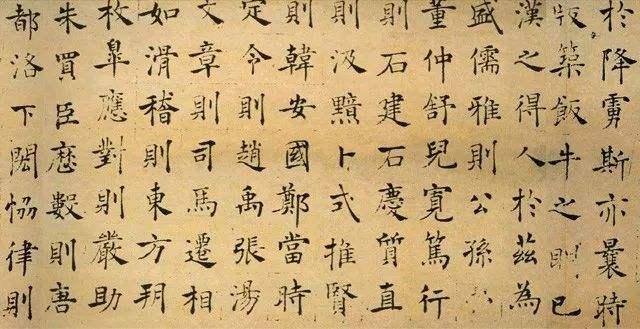 於降虜斯亦曩時
版築飯牛之已
漢之得人於茲為
盛儒雅則公孫
董仲舒兒寬篤行
則石建石慶質直
則汲黯卜式推賢
則韓安國鄭當時
定令則趙禹張湯
文章則司馬遷相
如滑稽則東方朔
枚皐應對則嚴助
朱買臣歷數則唐
都洛下閎恊律則